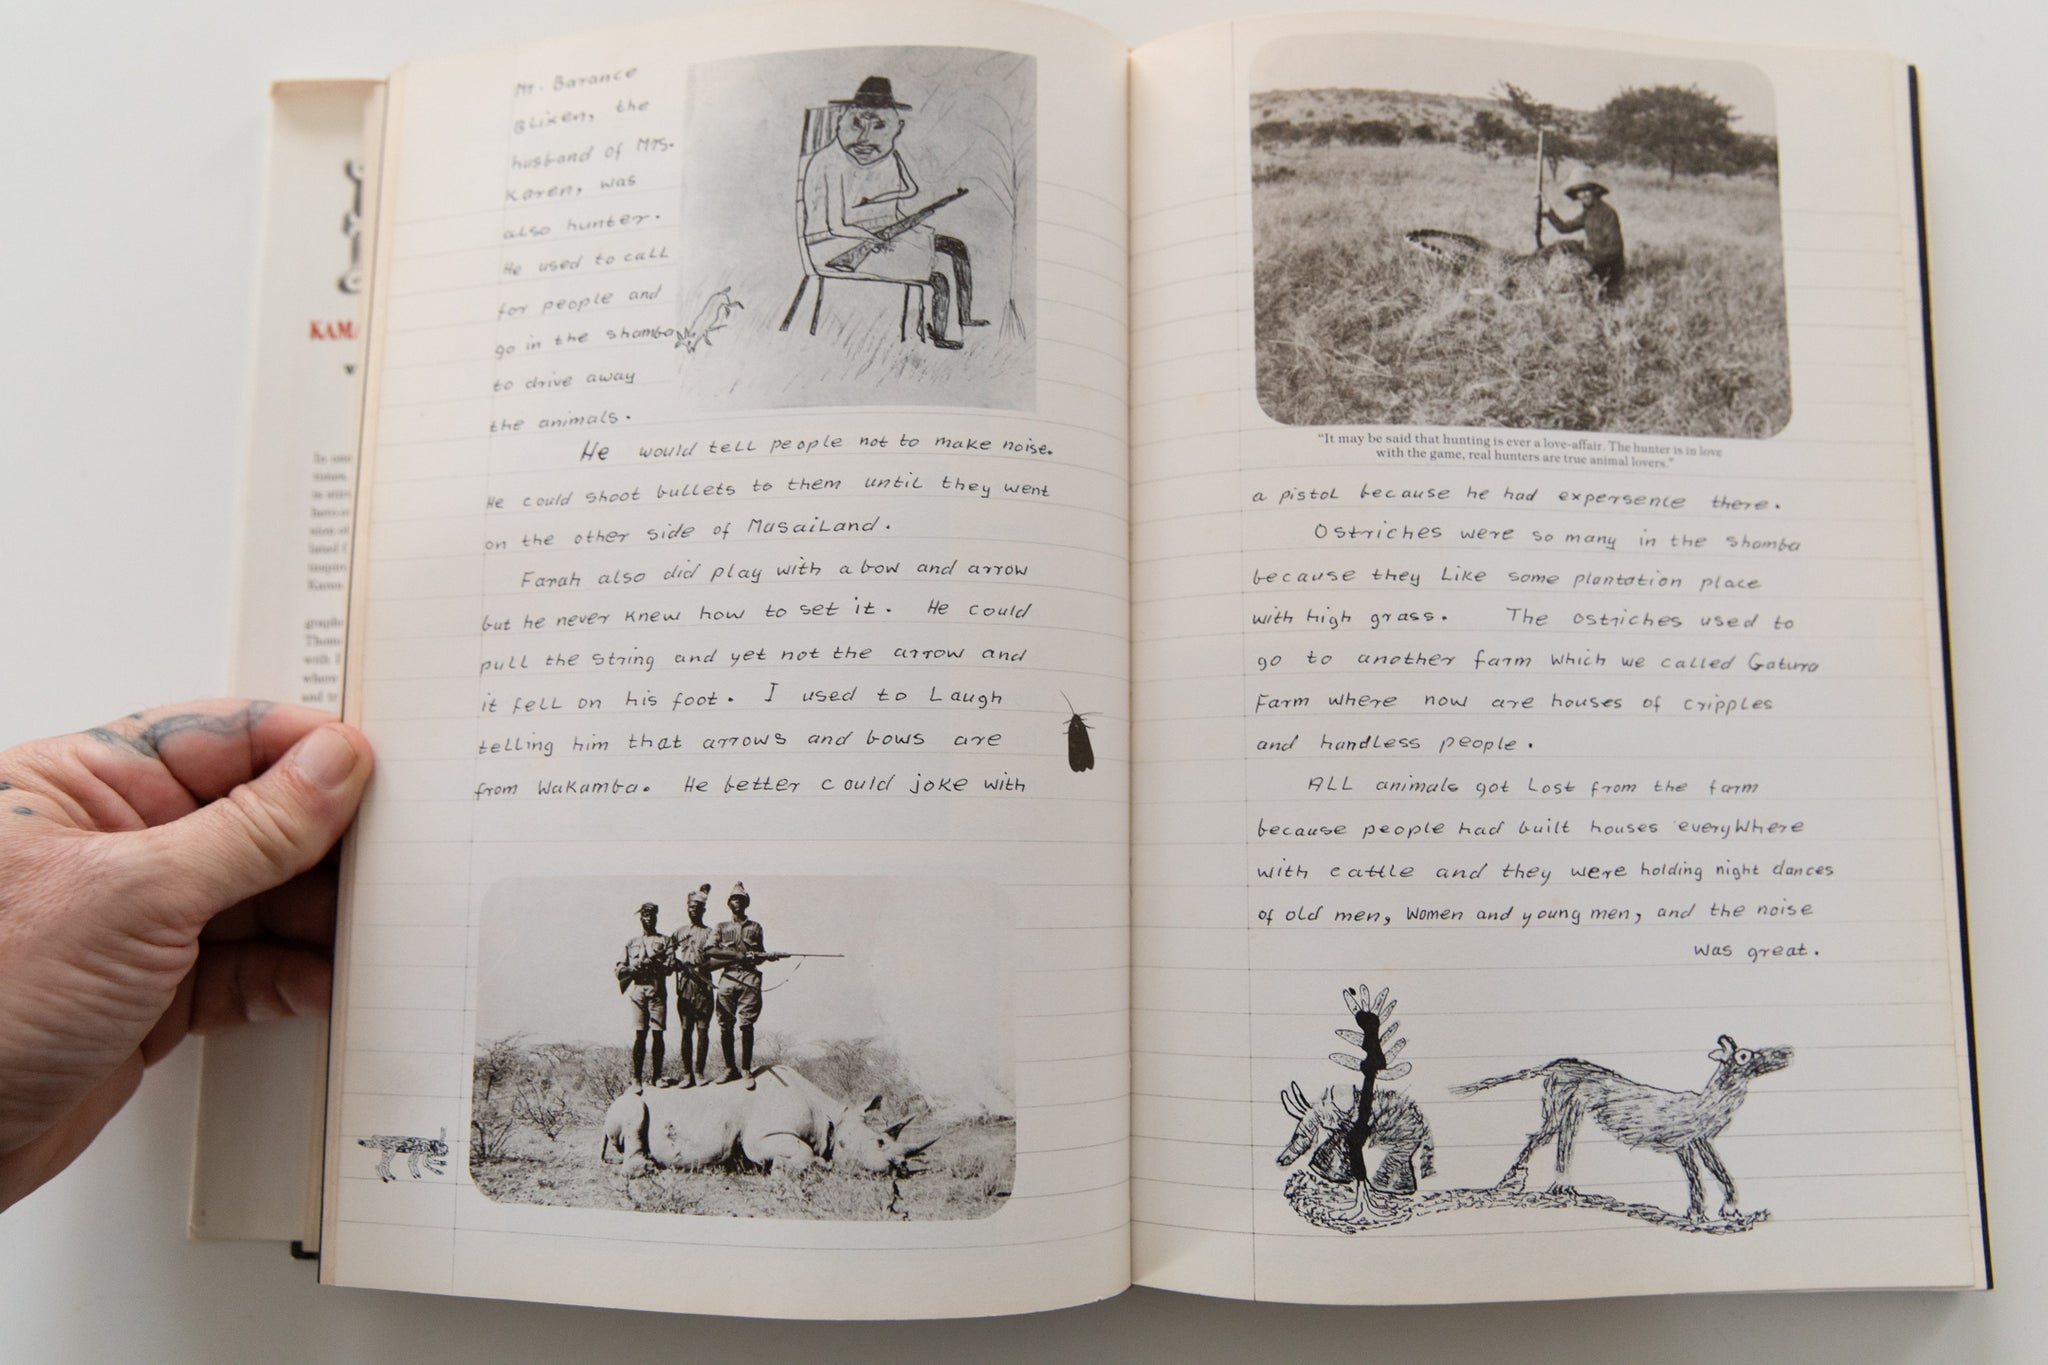 KAMA
Mr. Barance
Blixen, the
husband of Mrs.
Karen, was
also hunter.
He used to call
for people and
go in the shamba
to drive away
the animals.
He would tell people not to make noise.
He could shoot bullets to them until they went
on the other side of MasaiLand.
Farah also did play with a bow and arrow
but he never knew how to set it. He could
pull the string and yet not the arrow and
it fell on his foot. I used to Laugh
telling him that arrows and bows are
from Wakamba. He better could joke with
"It may be said that hunting is ever a love-affair. The hunter is in love
with the game, real hunters are true animal lovers."
a pistol because he had expersence there.
Ostriches were so many in the shamba
because they Like some plantation place
with high grass. The ostriches used to
go to another farm which we called Gatura
Farm where now are houses of cripples
and handless people.
ALL animals got Lost from the farm
because people had built houses everyWhere
with cattle and they were holding night dances
of old men, Women and young men, and the noise
was great.